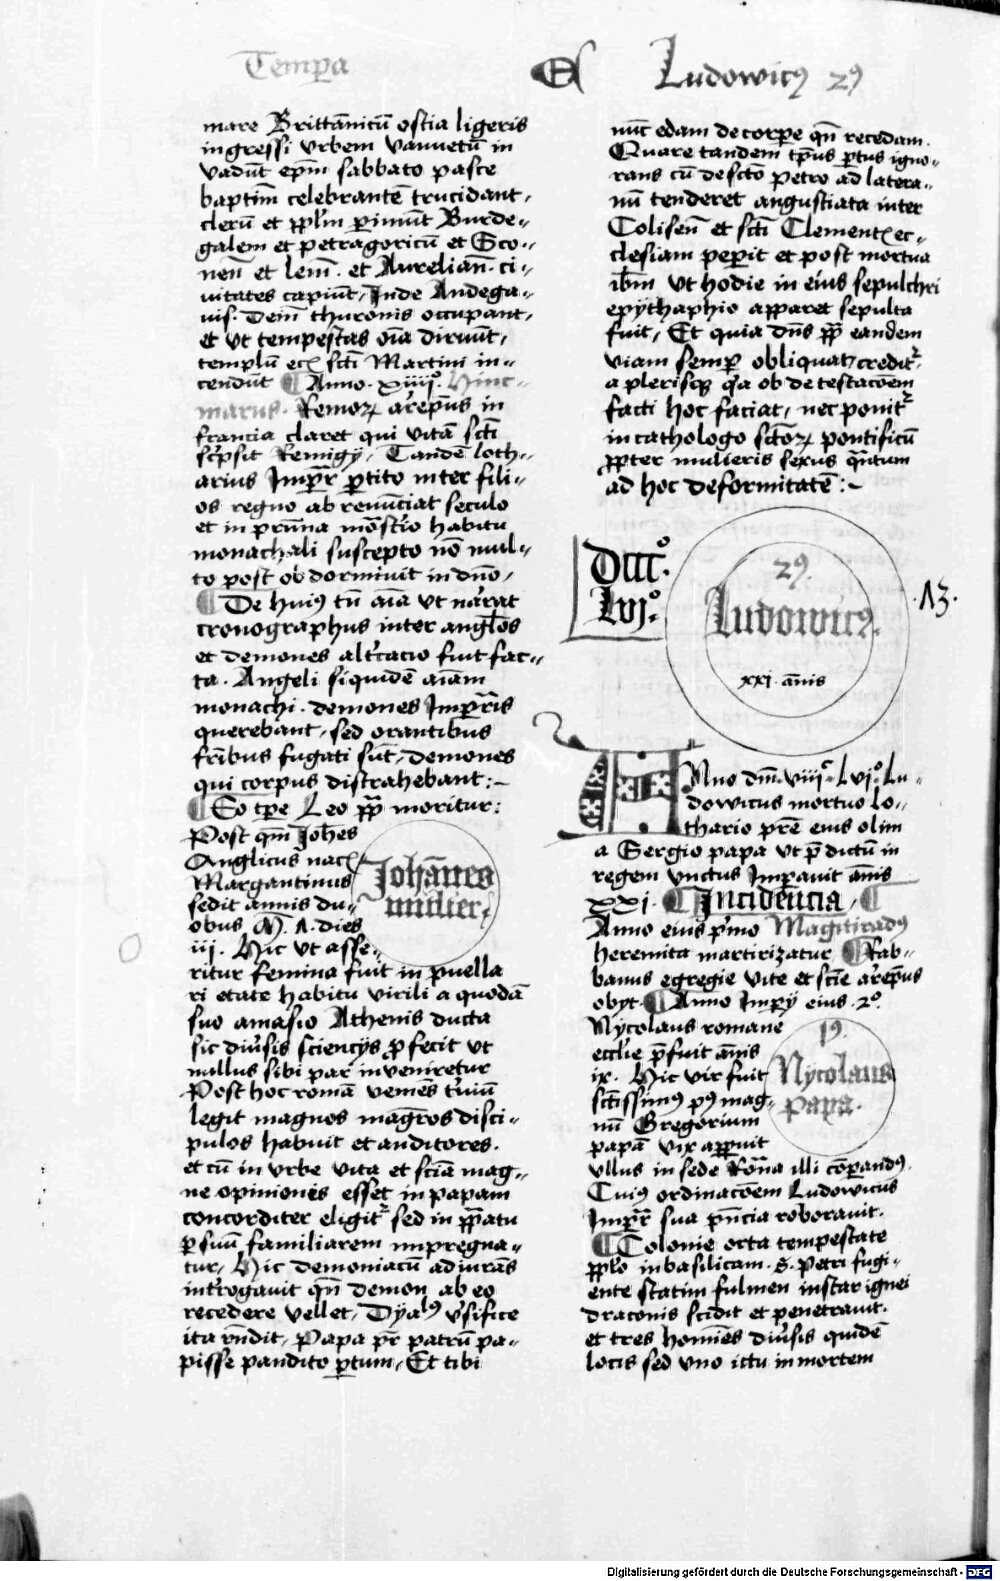 Tempa
Ludowicꝰ 2ꝰ
mare Brittānicū ostia ligeris
ingressi vrbem vannetū in
vadūt ep̄m sabbato pasce
baptism celebrantē trucidant,
clerū et ppl'm perimūt Burde-
galem et petragoricū et Sco-
nen̄ et lem̄. et Aurelian̄. ci-
uitates capiūt, Inde Andega-
uis. Dein̄ thuronis occupant,
et vt tempestas oīa diruūt,
templū scti Martini in-
cendūt Anno. xiiij°. Hinc-
marus. Remoꝝ arep̄us in
francia claret qui vitā scti
sc'psit Remigij, Tandē loth-
arius Imper̄r ꝑtito inter fili-
os regno ab renūciat seculo
et in prūna mōst'io habitu
monachali suscepto nō mul-
to post ob dormiuit in dn̄o,
De huiꝰ tn̄ aīa vt narrat
cronographus inter angl'os
et demones alt'cacio fuit fac-
ta. Angeli siquidē aīam
monachi. demones Imper̄ris
querebant, sed orantibus
fr̄ibus fugati sūt, demones
qui corpus distrahebant:-
Eo tp̄e Leo pp̄ moritur:
Post quē Joh̄es
Anglicus nac̄
Margantinus
sedit annis du-
obus M. 1. dies
iij. Hic vt asse-
Johānes
mulier
ritur femina fuit in puella
ri etate habitu virili a quodā
suo amasio Athenis ducta
sic diu'sis sciencijs ꝓfecit vt
nullus sibi par inveniretur
Post hoc romā veniēs t'uiū
legit magnos mag'ros disci-
pulos habuit et auditores.
et cū in vrbe vita et sciā mag-
ne opinionis esset in papam
concorditer eligit' sed in pp̄atu
ꝑ suū familiarem impregna-
tur, Hic demoniacū adiurās
int'rogauit qn̄ demon ab eo
recedere vellet, Dyalꝰ v'sifice
ita rn̄dit, Papa pr̄ patrū pa-
pisse pandito ꝑtum, Et tibi
nūc edam de corꝑe qn̄ recedam.
Quare tandem tp̄us ꝑtus igno-
rans cū de sc̄to petro ad latera-
nū tenderet angustiata inter
Colisen̄ et scti Clement; ec-
clesiam peperit et post mortua
ibm̄ vt hodie in eius sepulchri
epythaphio apparet sepulta
fuit, Et quia dn̄s pp̄ eandem
viam semꝑ obliquat, credit'
a plerisqꝫ q'a ob detestacōem
facti hoc faciat, nec ponit'
in cathologo sctōꝝ pontificū
ꝓpter mulieris sexus q̄ntum
ad hoc deformitatē:-
DCCC°.
Lvj°.
2ꝰ.
Ludowicꝰ.
xxi. annis
.13.
Anno dm̄. viijᶜ. Lvj°. Lu-
dowicus mortuo lo-
thario prē eius olim
a Sergio papa vt p̄dictū in
regem vnctus Imperauit annis
xxj. Incidencia,
Anno eius p'mo Magitiradꝰ
heremita martirizatur Rab-
banus egregie vite et scīe arep̄us
obyt. Anno Impery eius. 2°.
Nycolaus romane
ecclīe p̄fuit annis
ix. Hic vir fuit
sctissimꝰ pꝰ mag-
nū Gregorium
papā vix apparuit
1ꝰ.
Nycolaus
papa.
vllus in sede Romāna illi cōparandꝰ.
Cuiꝰ ordinacōem Ludowicus
Imper̄r sua p̄ncia roborauit.
Colonie orta tempestate
ppl'o in basilicam. S. Petri fugi-
ente statim fulmen instar ignei
draconis scidit et penetrauit.
et tres homīes diu'sis quidē
locis sed vno ictu in mortem
Digitalisierung gefördert durch die Deutsche Forschungsgemeinschaft - DFG